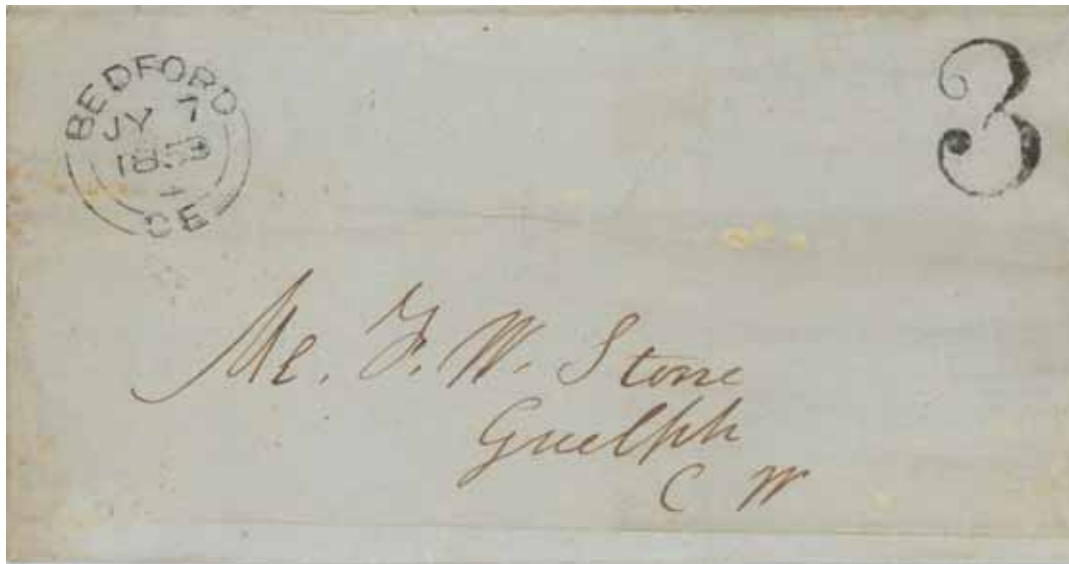 BEDFORD
JY 7
1853
CE
3
Mr. F. W. Stone
Guelph
C W